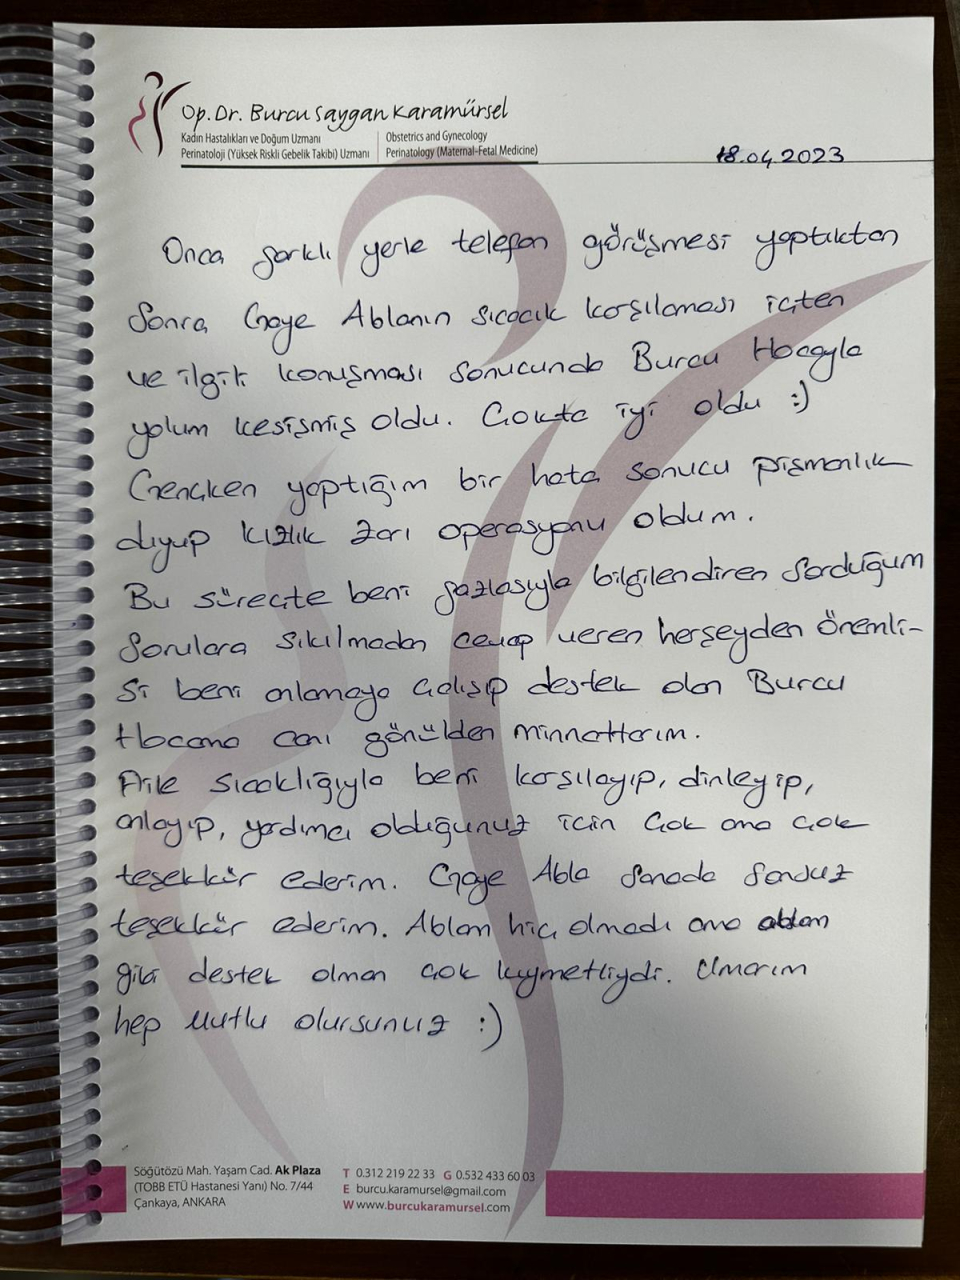 Op. Dr. Burcu Saygan Karamürsel
Kadın Hastalıkları ve Doğum Uzmanı
Perinatoloji (Yüksek Riskli Gebelik Takibi) Uzmanı
Obstetrics and Gynecology
Perinatology (Maternal-Fetal Medicine)
18.04.2023
Onca farklı yerle telefon görüşmesi yaptıktan
Sonra Gaye Ablanın sıcacık karşılaması içten
ve ilgili konuşması sonucunda Burcu Hocayla
yolum kesişmiş oldu. Çokta iyi oldu :)
Gençken yaptığım bir hata sonucu pişmanlık
duyup kızlık zarı operasyonu oldum.
Bu süreçte beni fazlasıyla bilgilendiren Sorduğum
Sorulara sıkılmadan cevap veren herşeyden önemli-
si beni anlamaya çalışıp destek olan Burcu
Hocama canı gönülden minnettarım.
Aile sıcaklığıyla beni karşılayıp, dinleyip,
anlayıp, yardımcı olduğunuz için çok ama çok
teşekkür ederim. Gaye Abla Sanada Sonsuz
teşekkür ederim. Ablam hiç olmadı ama ablam
gibi destek olman çok kıymetliydi. Umarım
hep Mutlu olursunuz :)
Söğütözü Mah. Yaşam Cad. Ak Plaza
(TOBB ETÜ Hastanesi Yanı) No. 7/44
Çankaya, ANKARA
T 0.312 219 22 33 G 0.532 433 60 03
E burcu.karamursel@gmail.com
W www.burcukaramursel.com